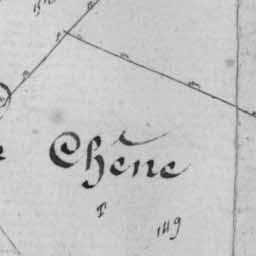 Chêne
T
149